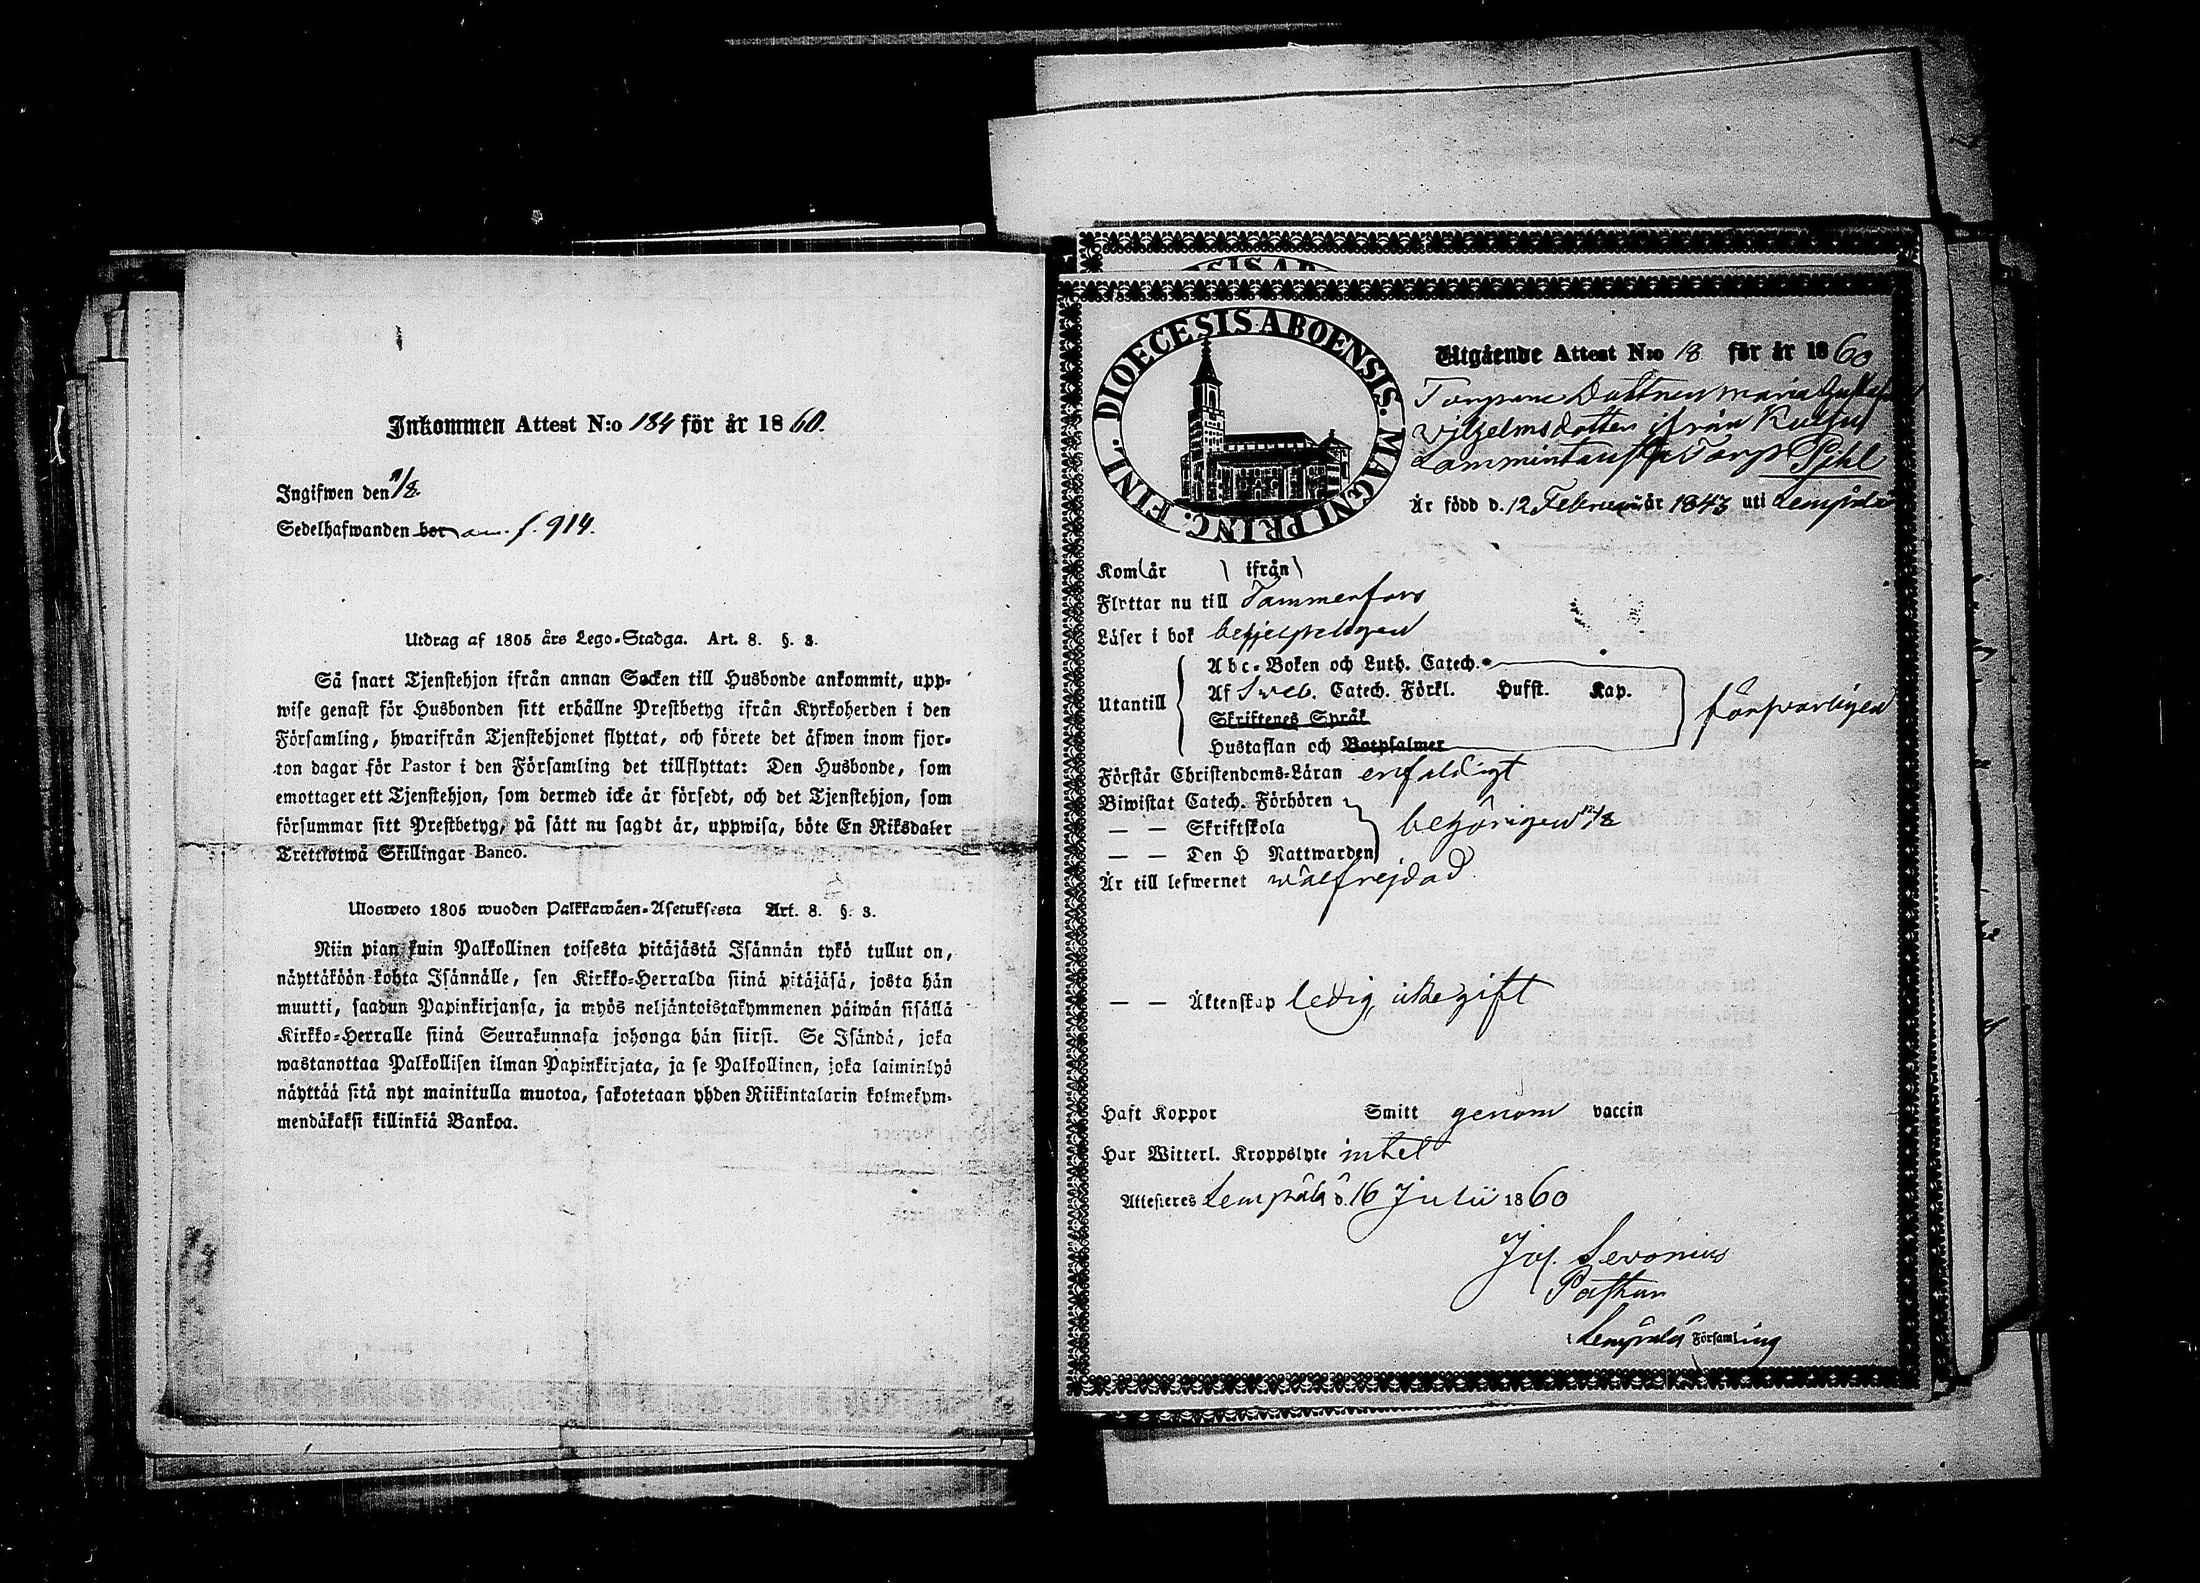 Inkommen Attest N:o 184 för år 1860.
Ingifwen den 1/8.
Sedelhafwanden bor ann. f. 914.
Utdrag af 1805 års Lego-Stadga. Art. 8. §. 3.
Så snart Tjenstehjon ifrån annan Socken till Husbonde ankommit, upp-
wise genast för Husbonden sitt erhållne Prestbetyg ifrån Kyrkoherden i den
Församling, hwarifrån Tjenstehjonet flyttat, och förete det äfwen inom fjor-
ton dagar för Pastor i den Församling det tillflyttat: Den Husbonde, som
emottager ett Tjenstehjon, som dermed icke är försedt, och det Tjenstehjon, som
försummar sitt Prestbetyg, på sätt nu sagdt är, uppwisa, böte En Riksdaler
Trettiotwå Skillingar Banco.
Ulosweto 1805 wuoden Palkkawäen-Asetuksesta Art. 8. §. 3.
Niin pian kuin Palkollinen toisesta pitäjästä Isännän tykö tullut on,
näyttäköön kohta Isännälle, sen Kirkko-Herralda siinä pitäjäsä, josta hän
muutti, saadun Papinkirjansa, ja myös neljäntoistakymmenen päiwän sisällä
Kirkko-Herralle siinä Seurakunnasa johonga hän siirsi. Se Isändä, joka
wastanottaa Palkollisen ilman Papinkirjata, ja se Palkollinen, joka laiminlyö
näyttää sitä nyt mainitulla muotoa, sakotetaan yhden Riikintalarin kolmekym-
mendäkaksi killinkiä Bankoa.
DIOECESIS ABOENSIS. MAGNI PRINC. FINL.
Utgående Attest N:o 18 för år 1860
Torpare Dottren Maria
Vilhelmsdotter ifrån Kulju
Torp Pihl
Är född d. 12 Februari år 1843 uti Lempälä
Kom år ifrån
Flyttar nu till Tammerfors
Läser i bok behjelpeligen
Utantill
Abc-Boken och Luth. Catech.
Af Sveb. Catech. Förkl. Husst. Kap.
Skriftenes Språk
Hustaflan och Botpsalmer
försvarligen
Förstår Christendoms-Läran enfaldigt
Biwistat Catech. Förhören
— — Skriftskola
— — Den H Nattwarden
behörigen
Är till lefwernet välfrejdad.
— — Äktenskap ledig, icke gift
Haft Koppor Smitt genom vaccin
Har Witterl. Kroppslyte intet
Attesteres Lempälä d. 16 Julii 1860
Jos. Sevonius
Pastor
i Lempälä Församling